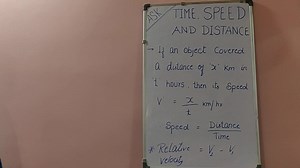 ASK
TIME, SPEED
AND DISTANCE
→ If an object Covered
a distance of 'x' km in
t hours then its Speed
V = x/t km/hr
Speed = Distance/Time
* Relative Velocity = V₂ - V₁